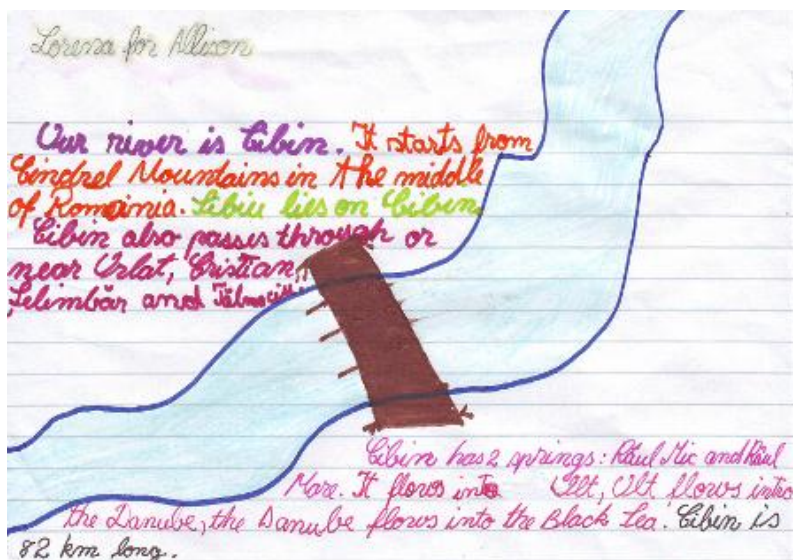 Lorena for Allison
Our river is Cibin. It starts from
Cindrel Mountains in the middle
of Romainia. Sibiu lies on Cibin.
Cibin also passes through or
near Orlat, Cristian,
Selimbăr and Tălmaciu
Cibin has 2 springs: Râul Mic and Râul
Mare. It flows into Olt, Olt flows intro
the Danube, the Danube flows into the Black Sea. Cibin is
82 km long.